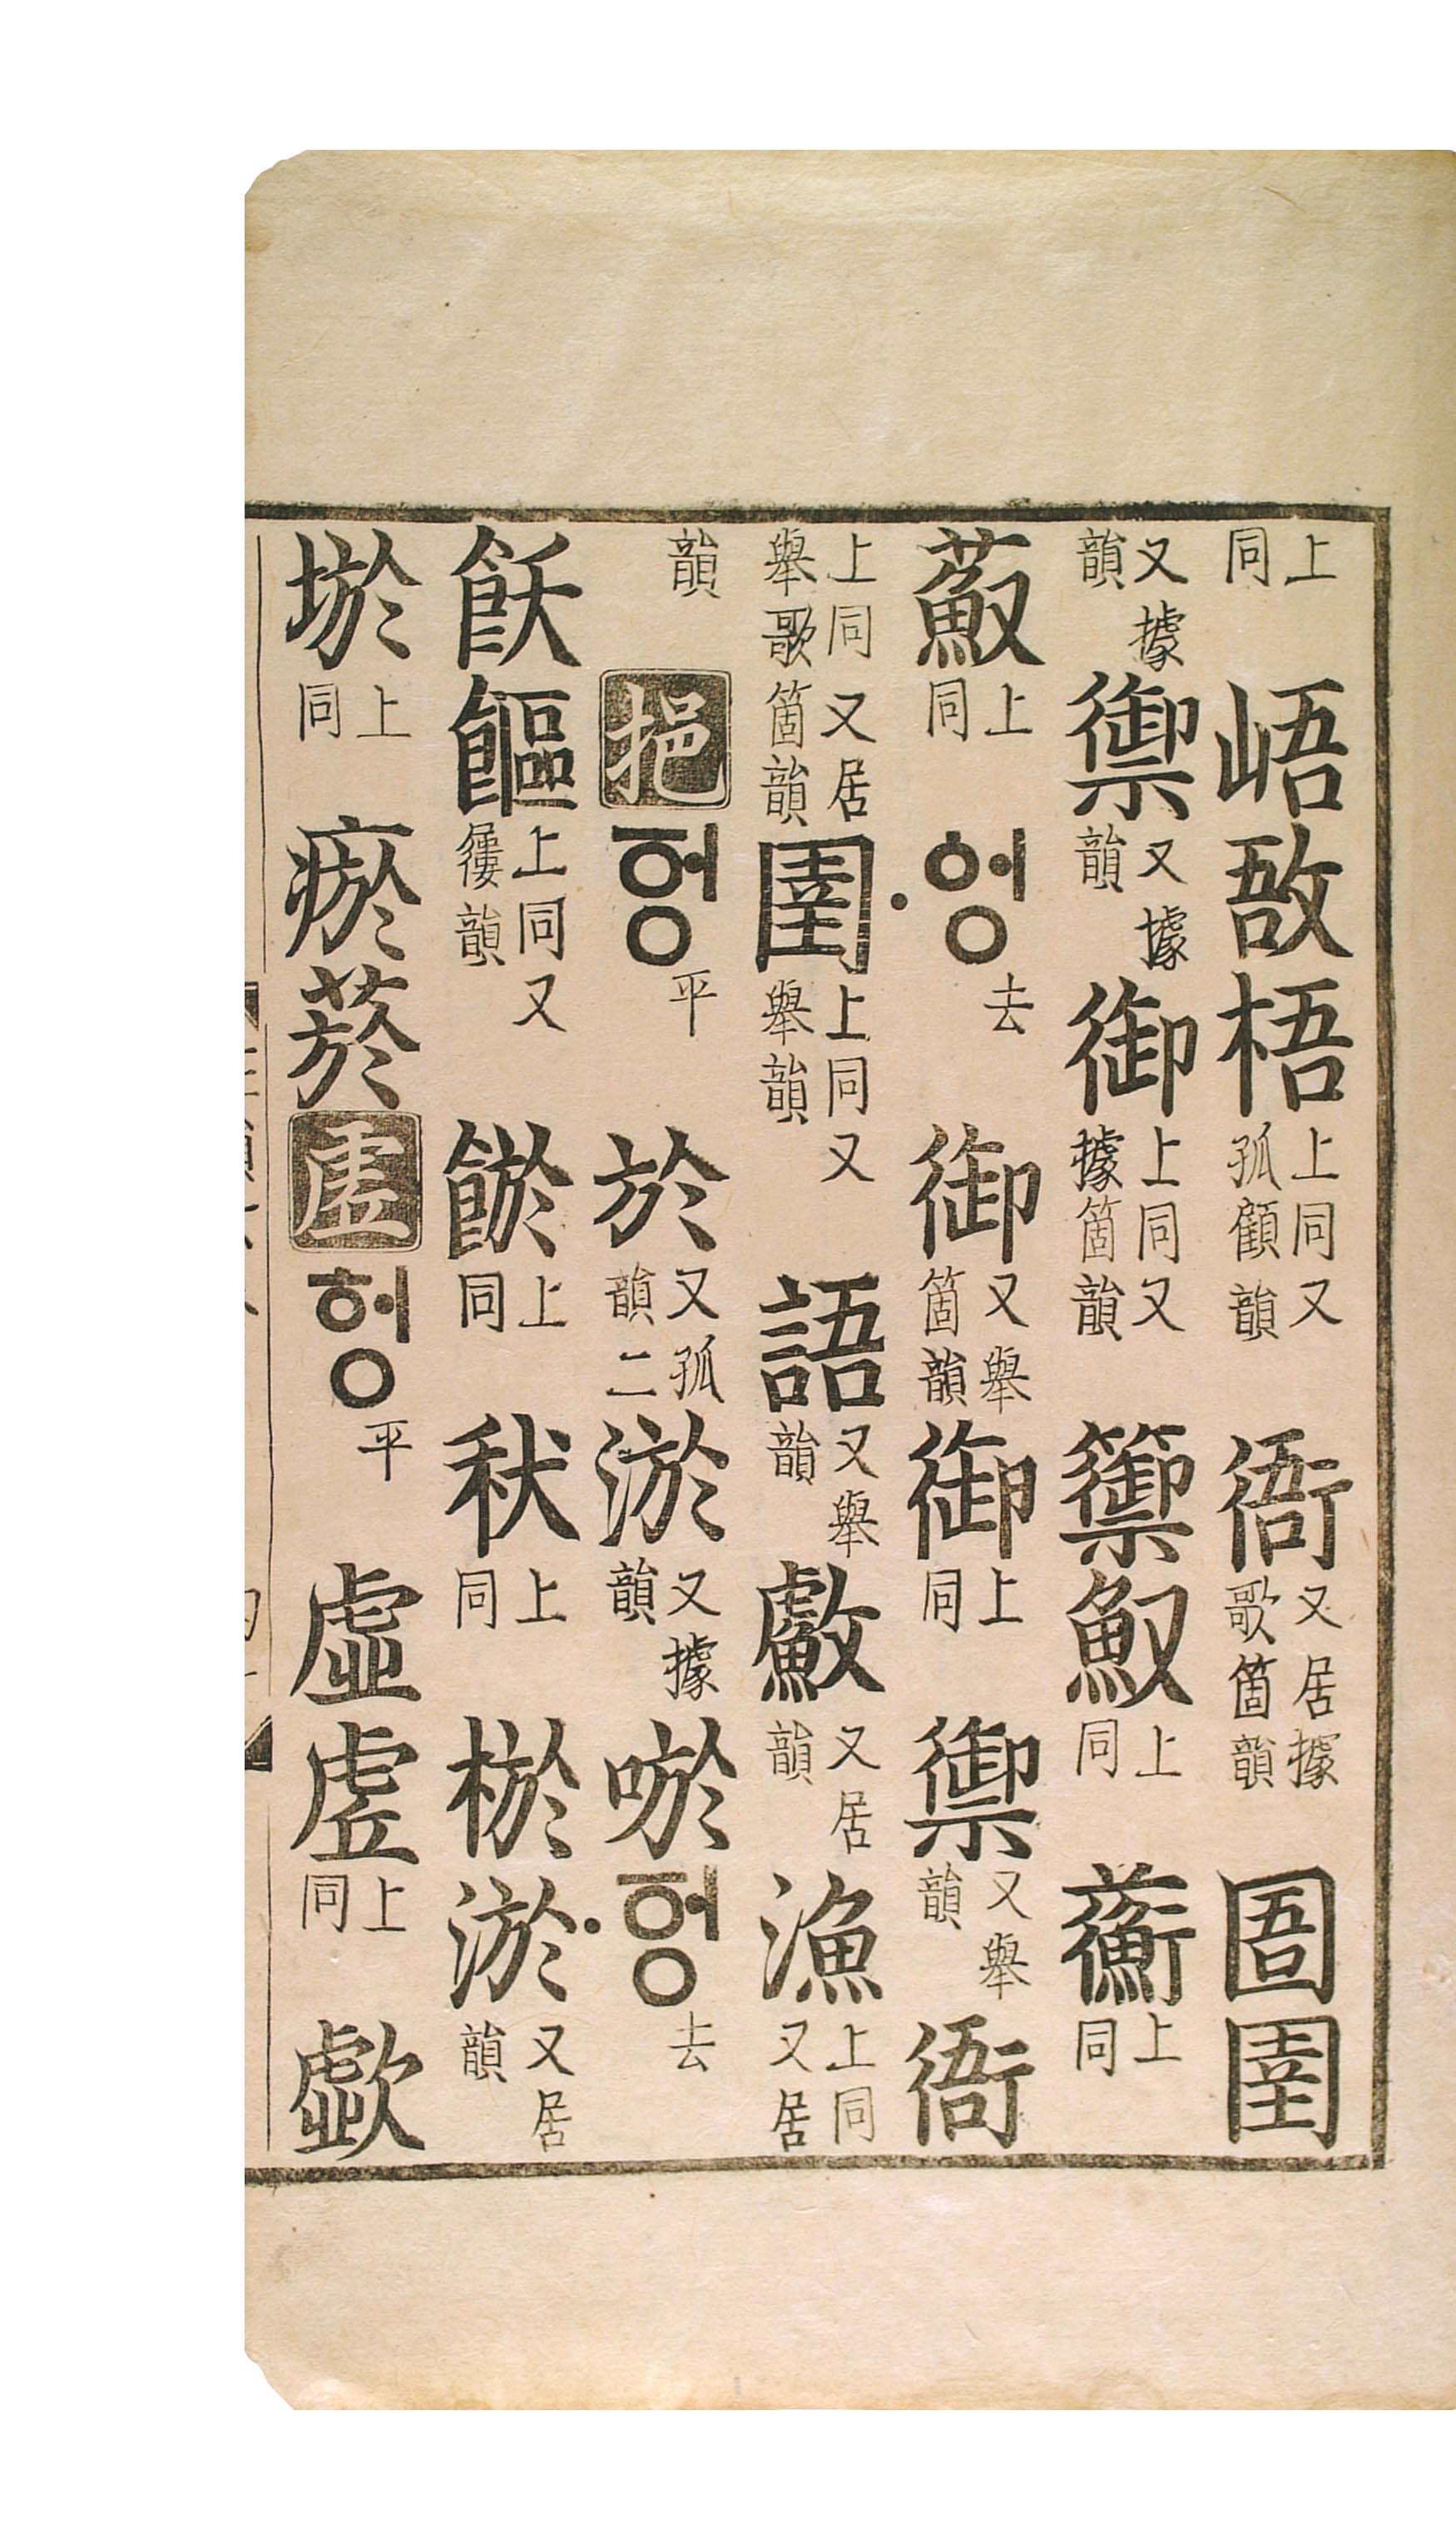 上同 峿敔梧 上同又孤顧韻 衙 又居據歌箇韻 圄圉
又據韻 禦 又據韻 御 上同又據箇韻 籞䰻 上同 上同
上同 ·ᅌᅥᆼ 去 御 又舉箇韻 御 上同 禦 又舉韻 衙
上同又居舉歌箇韻 圉 上同又舉韻 語 又舉韻 又居韻 漁 上同又居
韻 挹 ᅙᅥᆼ 平 於 又孤韻二 淤 又據韻 唹 ·ᅙᅥᆼ 去
飫饇 上同又屨韻 上同 上同 棜淤 又居韻
上同 瘀菸 虗 헝 平 虛虗 上同 歔